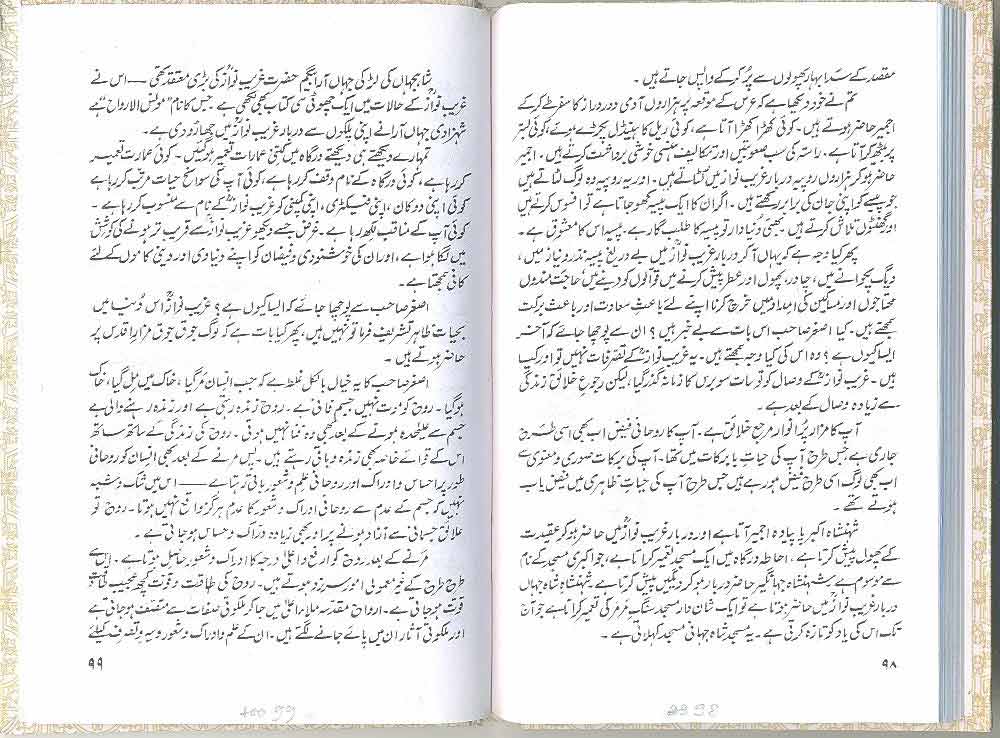 مقصد کے سدا بہار پھولوں سے پُر کرکے واپس جاتے ہیں ۔
تم نے خود دیکھا ہے کہ عرس کے موقعہ پہ ہزاروں آدمی دور دراز کا سفر طے کرکے
اجمیر حاضر ہوتے ہیں ۔ کوئی کھڑا کھڑا آتا ہے، کوئی ریل کا ہینڈل پکڑے ہوئے، کوئی بستر
پر بیٹھ کر آتا ہے ۔ راستہ کی سب صعوبتیں اور تکالیف ہنسی خوشی برداشت کرتے ہیں ۔ اجمیر
حاضر ہو کر ہزاروں روپیہ دربار غریب نوازؒ میں لٹاتے ہیں ۔ اور یہ روپیہ وہ لوگ لٹاتے ہیں
جو پیسے کو اپنی جان کی برابر سمجھتے ہیں ۔ اگر ان کا ایک پیسہ کھو جاتا ہے تو افسوس کرتے ہیں
اور گھنٹوں تلاش کرتے ہیں ۔ بھئی دنیا دار تو پیسہ کا طلب گار ہے ۔ پیسہ اس کا معشوق ہے ۔
پھر کیا وجہ ہے کہ یہاں آکر دربار غریب نوازؒ میں بے دریغ پیسہ نذر و نیاز میں ،
دیگ پکوانے میں، چادر، پھول اور عطر پیش کرنے میں قوالوں کو دینے میں حاجت مندوں
محتاجوں اور مساکین کی امداد میں خرچ کرنا اپنے لئے باعثِ سعادت اور باعث برکت
سمجھتے ہیں ۔ کیا اصغر صاحب اس بات سے بے خبر ہیں ؟ ان سے پوچھا جائے کہ آخر
ایسا کیوں ہے ؟ وہ اس کی کیا وجہ سمجھتے ہیں ۔ یہ غریب نوازؒ کے تصرفات نہیں تو اور کیا
ہیں ۔ غریب نوازؒ کے وصال کو تو سات سو برس کا زمانہ گذر گیا، لیکن رجوع خلائق زندگی
سے زیادہ وصال کے بعد ہے ۔
آپ کا مزار پُر انوار مرجع خلائق ہے ۔ آپ کا روحانی فیض اب بھی اسی طرح
جاری ہے جس طرح آپ کی حیات با برکات میں تھا ۔ آپ کی برکات صوری و معنوی سے
اب بھی لوگ اسی طرح فیض ہو رہے ہیں جس طرح آپ کی حیاتِ ظاہری میں فیض یاب
ہوتے تھے ۔
شہنشاہ اکبر پا پیادہ اجمیر آتا ہے اور دربار غریب نوازؒ میں حاضر ہو کر عقیدت
کے پھول پیش کرتا ہے ، احاطہ درگاہ میں ایک مسجد تعمیر کراتا ہے، جو اکبری مسجد کے نام
سے موسوم ہے ۔ شہنشاہ جہانگیر حاضر دربار ہو کر دیگیں پیش کرتا ہے ۔ شہنشاہ شاہ جہاں
دربار غریب نوازؒ میں حاضر ہوتا ہے تو ایک شان دار مسجد سنگِ مرمر کی تعمیر کراتا ہے جو آج
تک اس کی یاد کو تازہ کرتی ہے ۔ یہ مسجد شاہ جہانی مسجد کہلاتی ہے ۔
۹۸
98
شاہجہاں کی لڑکی جہاں آرا بیگم حضرت غریب نوازؒ کی بڑی معتقد تھی — اس نے
غریب نوازؒ کے حالات میں ایک چھوٹی سی کتاب بھی لکھی ہے جس کا نام "مونس الارواح" ہے
شہزادی جہاں آرا نے اپنی پلکوں سے دربار غریب نوازؒ میں جھاڑو دی ہے ۔
تمہارے دیکھتے ہی دیکھتے درگاہ میں کتنی عمارات تعمیر ہو گئیں ۔ کوئی عمارت تعمیر
کر رہا ہے ، کوئی درگاہ کے نام وقف کر رہا ہے ، کوئی آپ کی سوانح حیات مرتب کر رہا ہے
کوئی اپنی دوکان ، اپنی فیکٹری ، اپنی کمپنی کو غریب نوازؒ کے نام سے منسوب کر رہا ہے ۔
کوئی آپ کے مناقب لکھ رہا ہے ۔ غرض جسے دیکھو غریب نوازؒ سے قریب تر ہونے کی کوشش
میں لگا ہوا ہے ، اور ان کی خوشنودی و فیضان کو اپنے دنیاوی اور دینی کاموں کے لئے
کافی سمجھتا ہے ۔
اصغر صاحب سے پوچھا جائے کہ ایسا کیوں ہے ؟ غریب نوازؒ اس دُنیا میں
بحیات ظاہر تشریف فرما تو نہیں ہیں ، پھر کیا بات ہے کہ لوگ جوق جوق مزار اقدس پر
حاضر ہوتے ہیں ۔
اصغر صاحب کا یہ خیال بالکل غلط ہے کہ جب انسان مر گیا ، خاک میں مل گیا ، خاک
ہو گیا ۔ روح کو موت نہیں جسم فانی ہے ۔ روح زندہ رہتی ہے اور زندہ رہنے والی ہے
جسم سے علیحدہ ہونے کے بعد بھی وہ فنا نہیں ہوتی ۔ روح کی زندگی کے ساتھ ساتھ
اس کے قوائے خاصہ بھی زندہ و باقی رہتے ہیں ۔ پس مرنے کے بعد بھی انسان کو روحانی
طور پر احساس و ادراک اور روحانی علم و شعور باقی رہتا ہے — اس میں شک و شبہ
نہیں کہ جسم کے عدم سے روحانی ادراک و شعور کا عدم ہرگز واقع نہیں ہوتا ۔ روح تو
علائق جسمانی سے آزاد ہونے پر اور بھی زیادہ دراک و حساس ہو جاتی ہے ۔
مرنے کے بعد روح کو ارفع و اعلیٰ درجہ کا ادراک و شعور حاصل ہوتا ہے ۔ اس سے
طرح طرح کے غیر معمولی امور سرزد ہوتے ہیں ۔ روح کی طاقت و قوت کچھ عجیب
قوت ہو جاتی ہے ۔ ارواح مقدسہ ملاء اعلیٰ میں جا کر ملکوتی صفات سے متصف ہو جاتی ہے
اور ملکوتی آثار ان میں پائے جانے لگتے ہیں ۔ ان کے علم و ادراک و شعور و تصرف کیلئے
۹۹
99